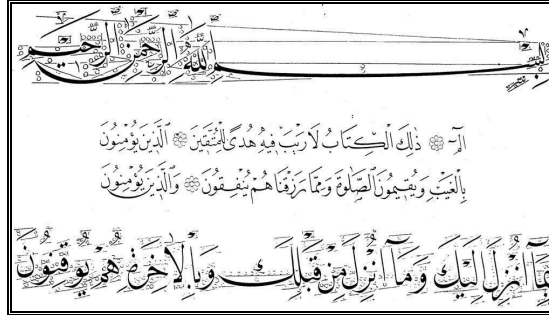 بسم الله الرحمن الرحيم
الم ذٰلِكَ الْكِتَابُ لَا رَيْبَ فِيهِ هُدًى لِلْمُتَّقِينَ الَّذِينَ يُؤْمِنُونَ
بِالْغَيْبِ وَيُقِيمُونَ الصَّلٰوةَ وَمِمَّا رَزَقْنَاهُمْ يُنْفِقُونَ وَالَّذِينَ يُؤْمِنُونَ
بِمَا أُنْزِلَ إِلَيْكَ وَمَا أُنْزِلَ مِنْ قَبْلِكَ وَبِالْآخِرَةِ هُمْ يُوقِنُونَ